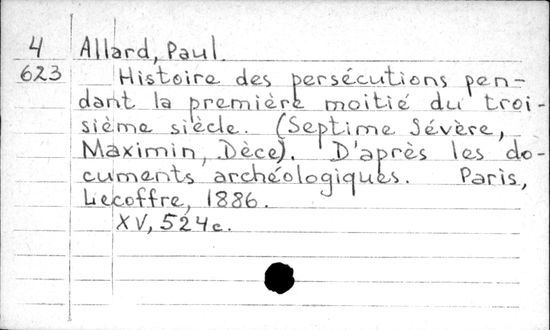 4 Allard, Paul.
623 Histoire des persécutions pen-
dant la première moitié du troi-
sième siècle. (Septime Sévère,
Maximin, Dèce). D'après les do-
cuments archéologiques. Paris,
Lecoffre, 1886.
XV, 524 c.